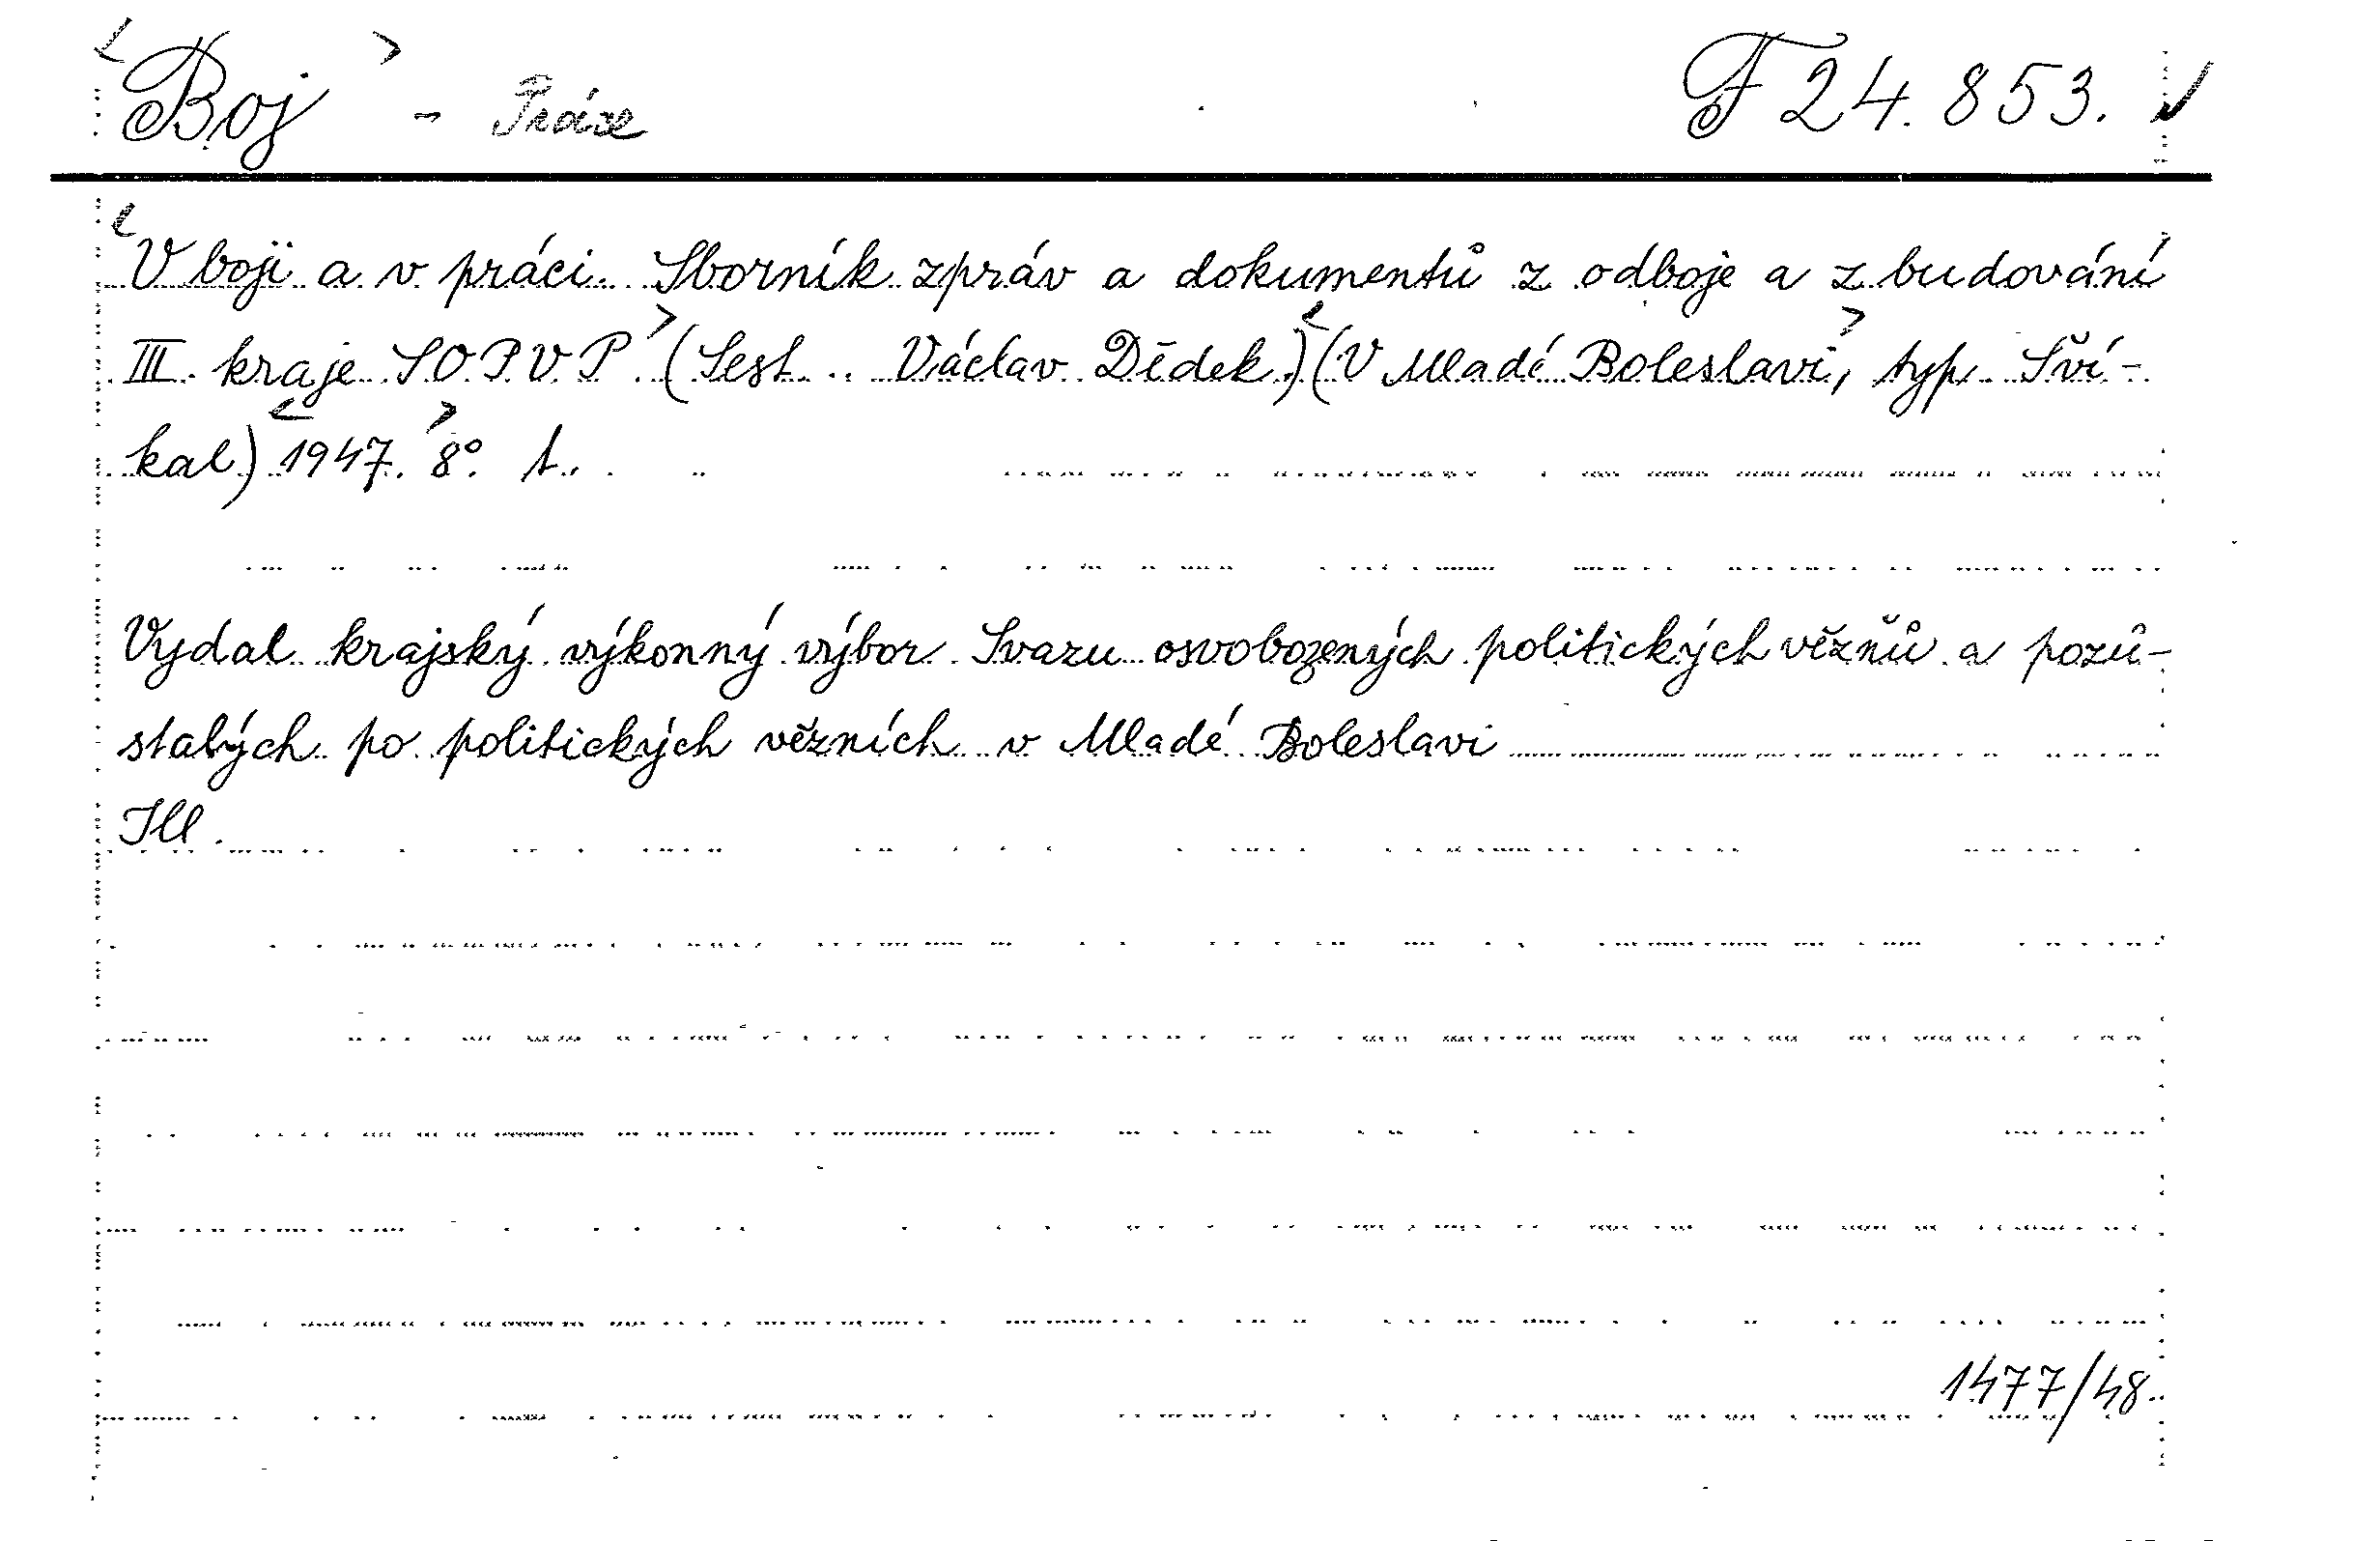 <Boj> - Práce F 24.853. ✓
<V boji a v práci. Sborník zpráv a dokumentů z odboje a z budování
III. kraje SOPVP.> (Sest. Václav Dědek.) <(V Mladé Boleslavi>, typ. Šví-
kal) <1947.> 8°.
Vydal krajský výkonný výbor Svazu osvobozených politických věznňů a pozů-
stalých po politických vězních v Mladé Boleslavi
Ill.
1477/48.